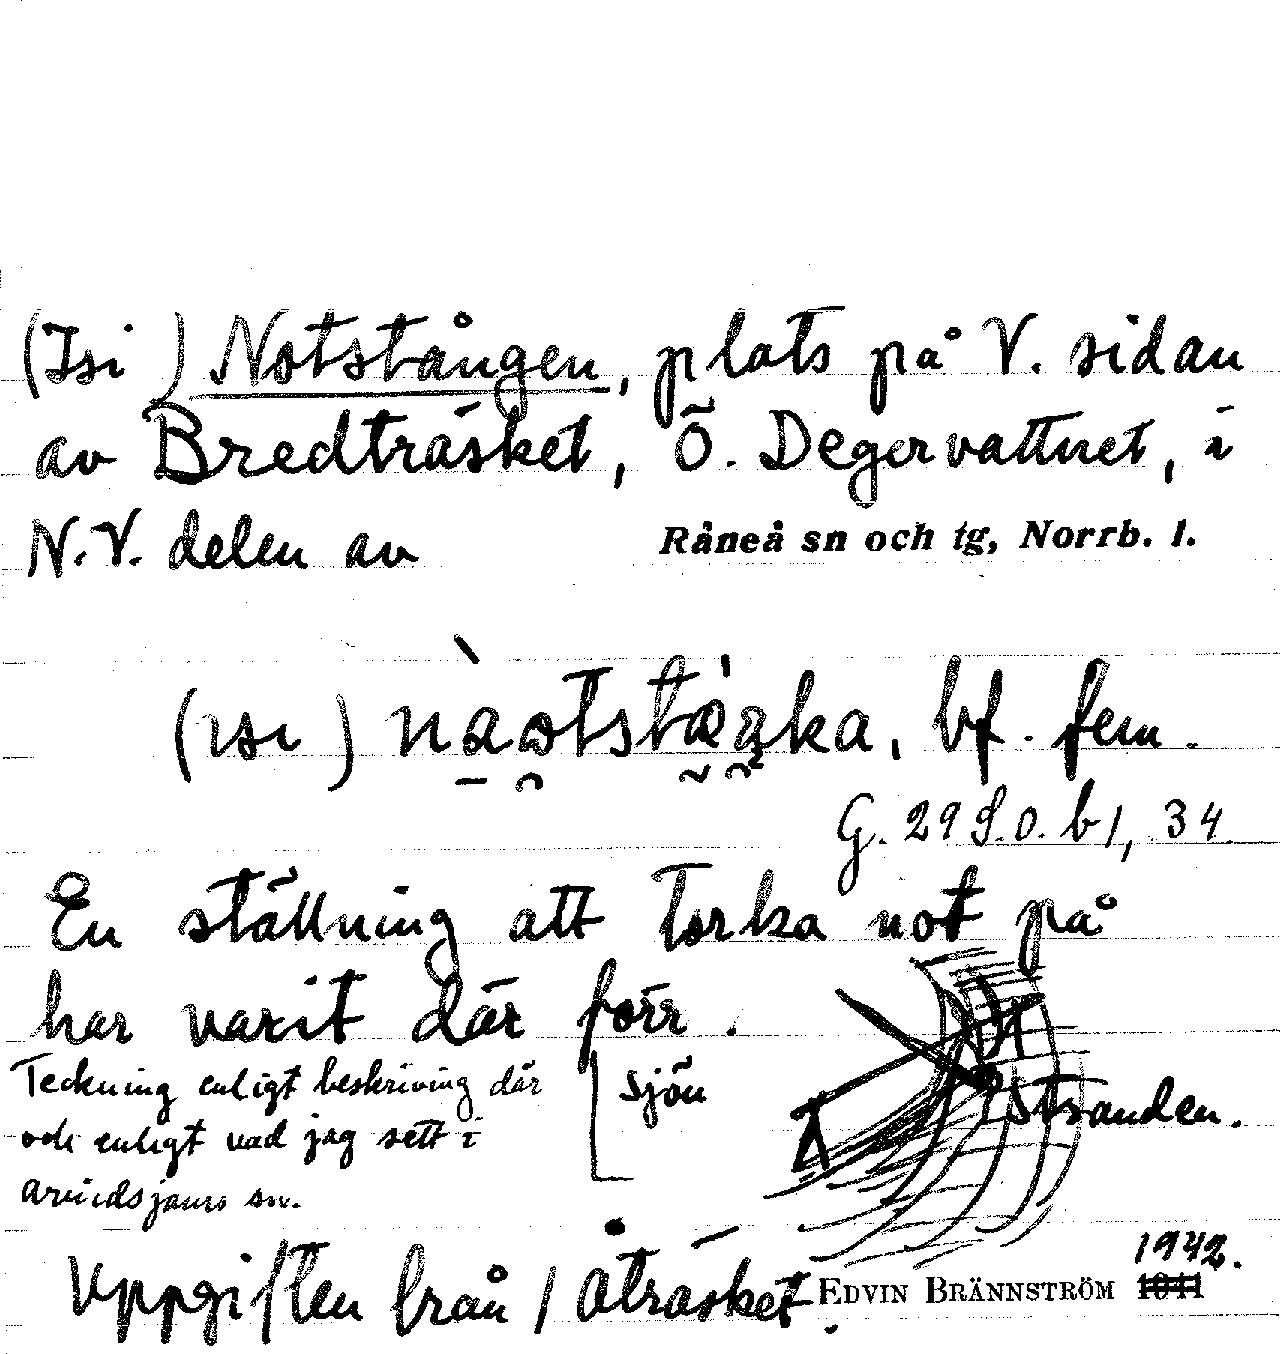 (Isi) Notstången, plats på V. sidan
av Bredträsket, Ö. Degervattnet, i
N.V. delen av Råneå sn och tg, Norrb. l.
(ɩsɩ) bf. fem.
G. 29 S.o. b1, 34.
En ställning att torka not på
har varit där förr.
Teckning enligt beskrivning där
och enligt vad jag sett i
Arvidsjaurs sn.
sjön
stranden.
Uppgiften från / Åträsket.
EDVIN BRÄNNSTRÖM 1941 1942.